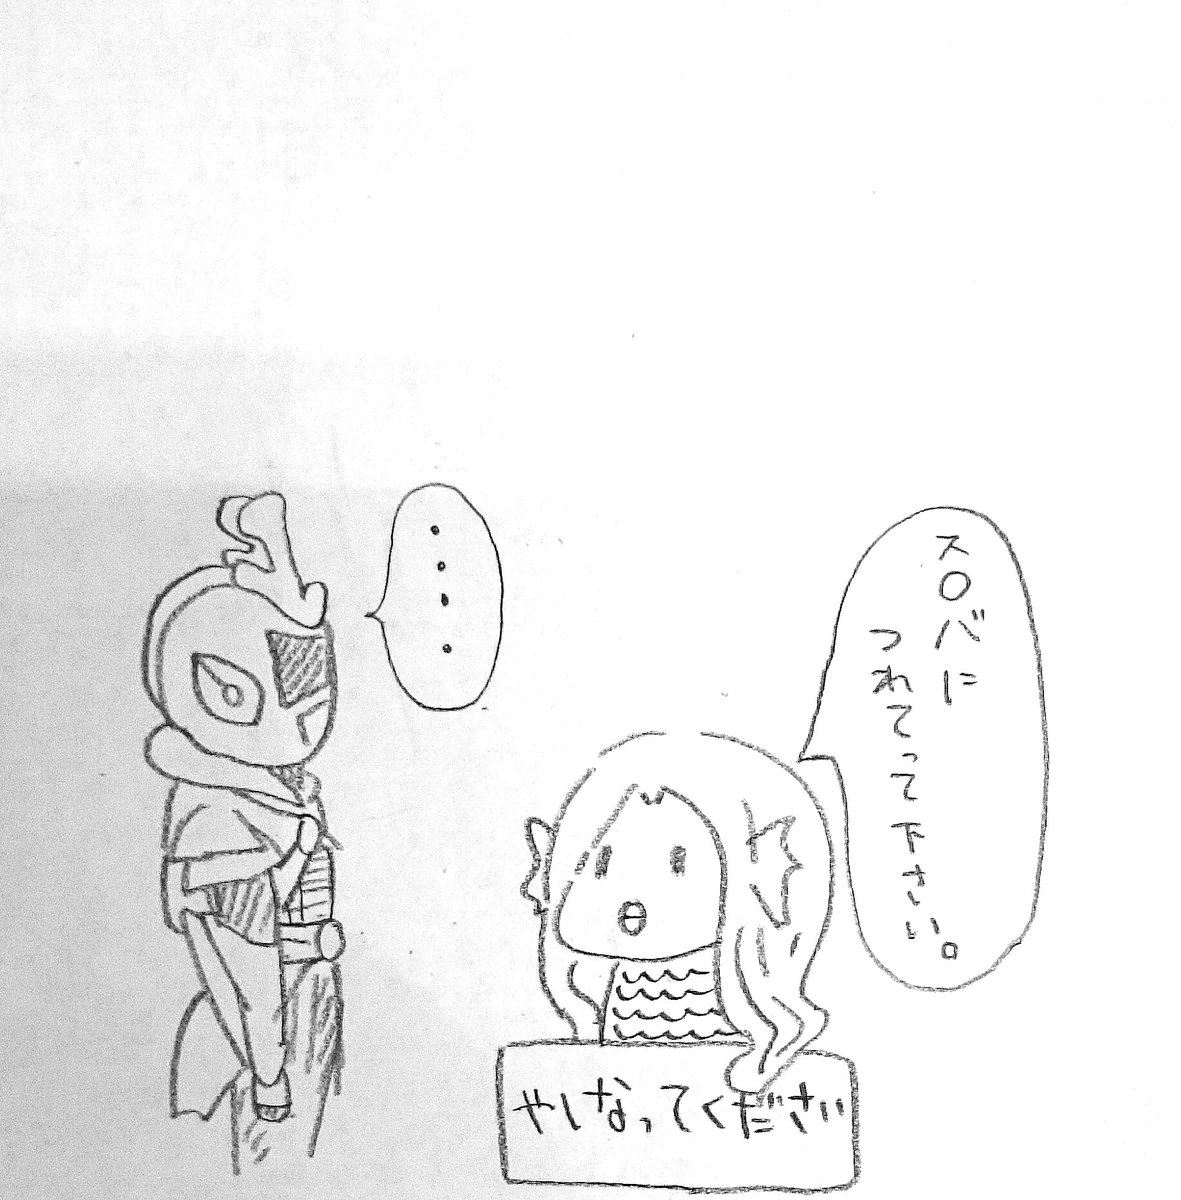 ・・・・
ス〇バに
つれてって下さい。
やしなってください